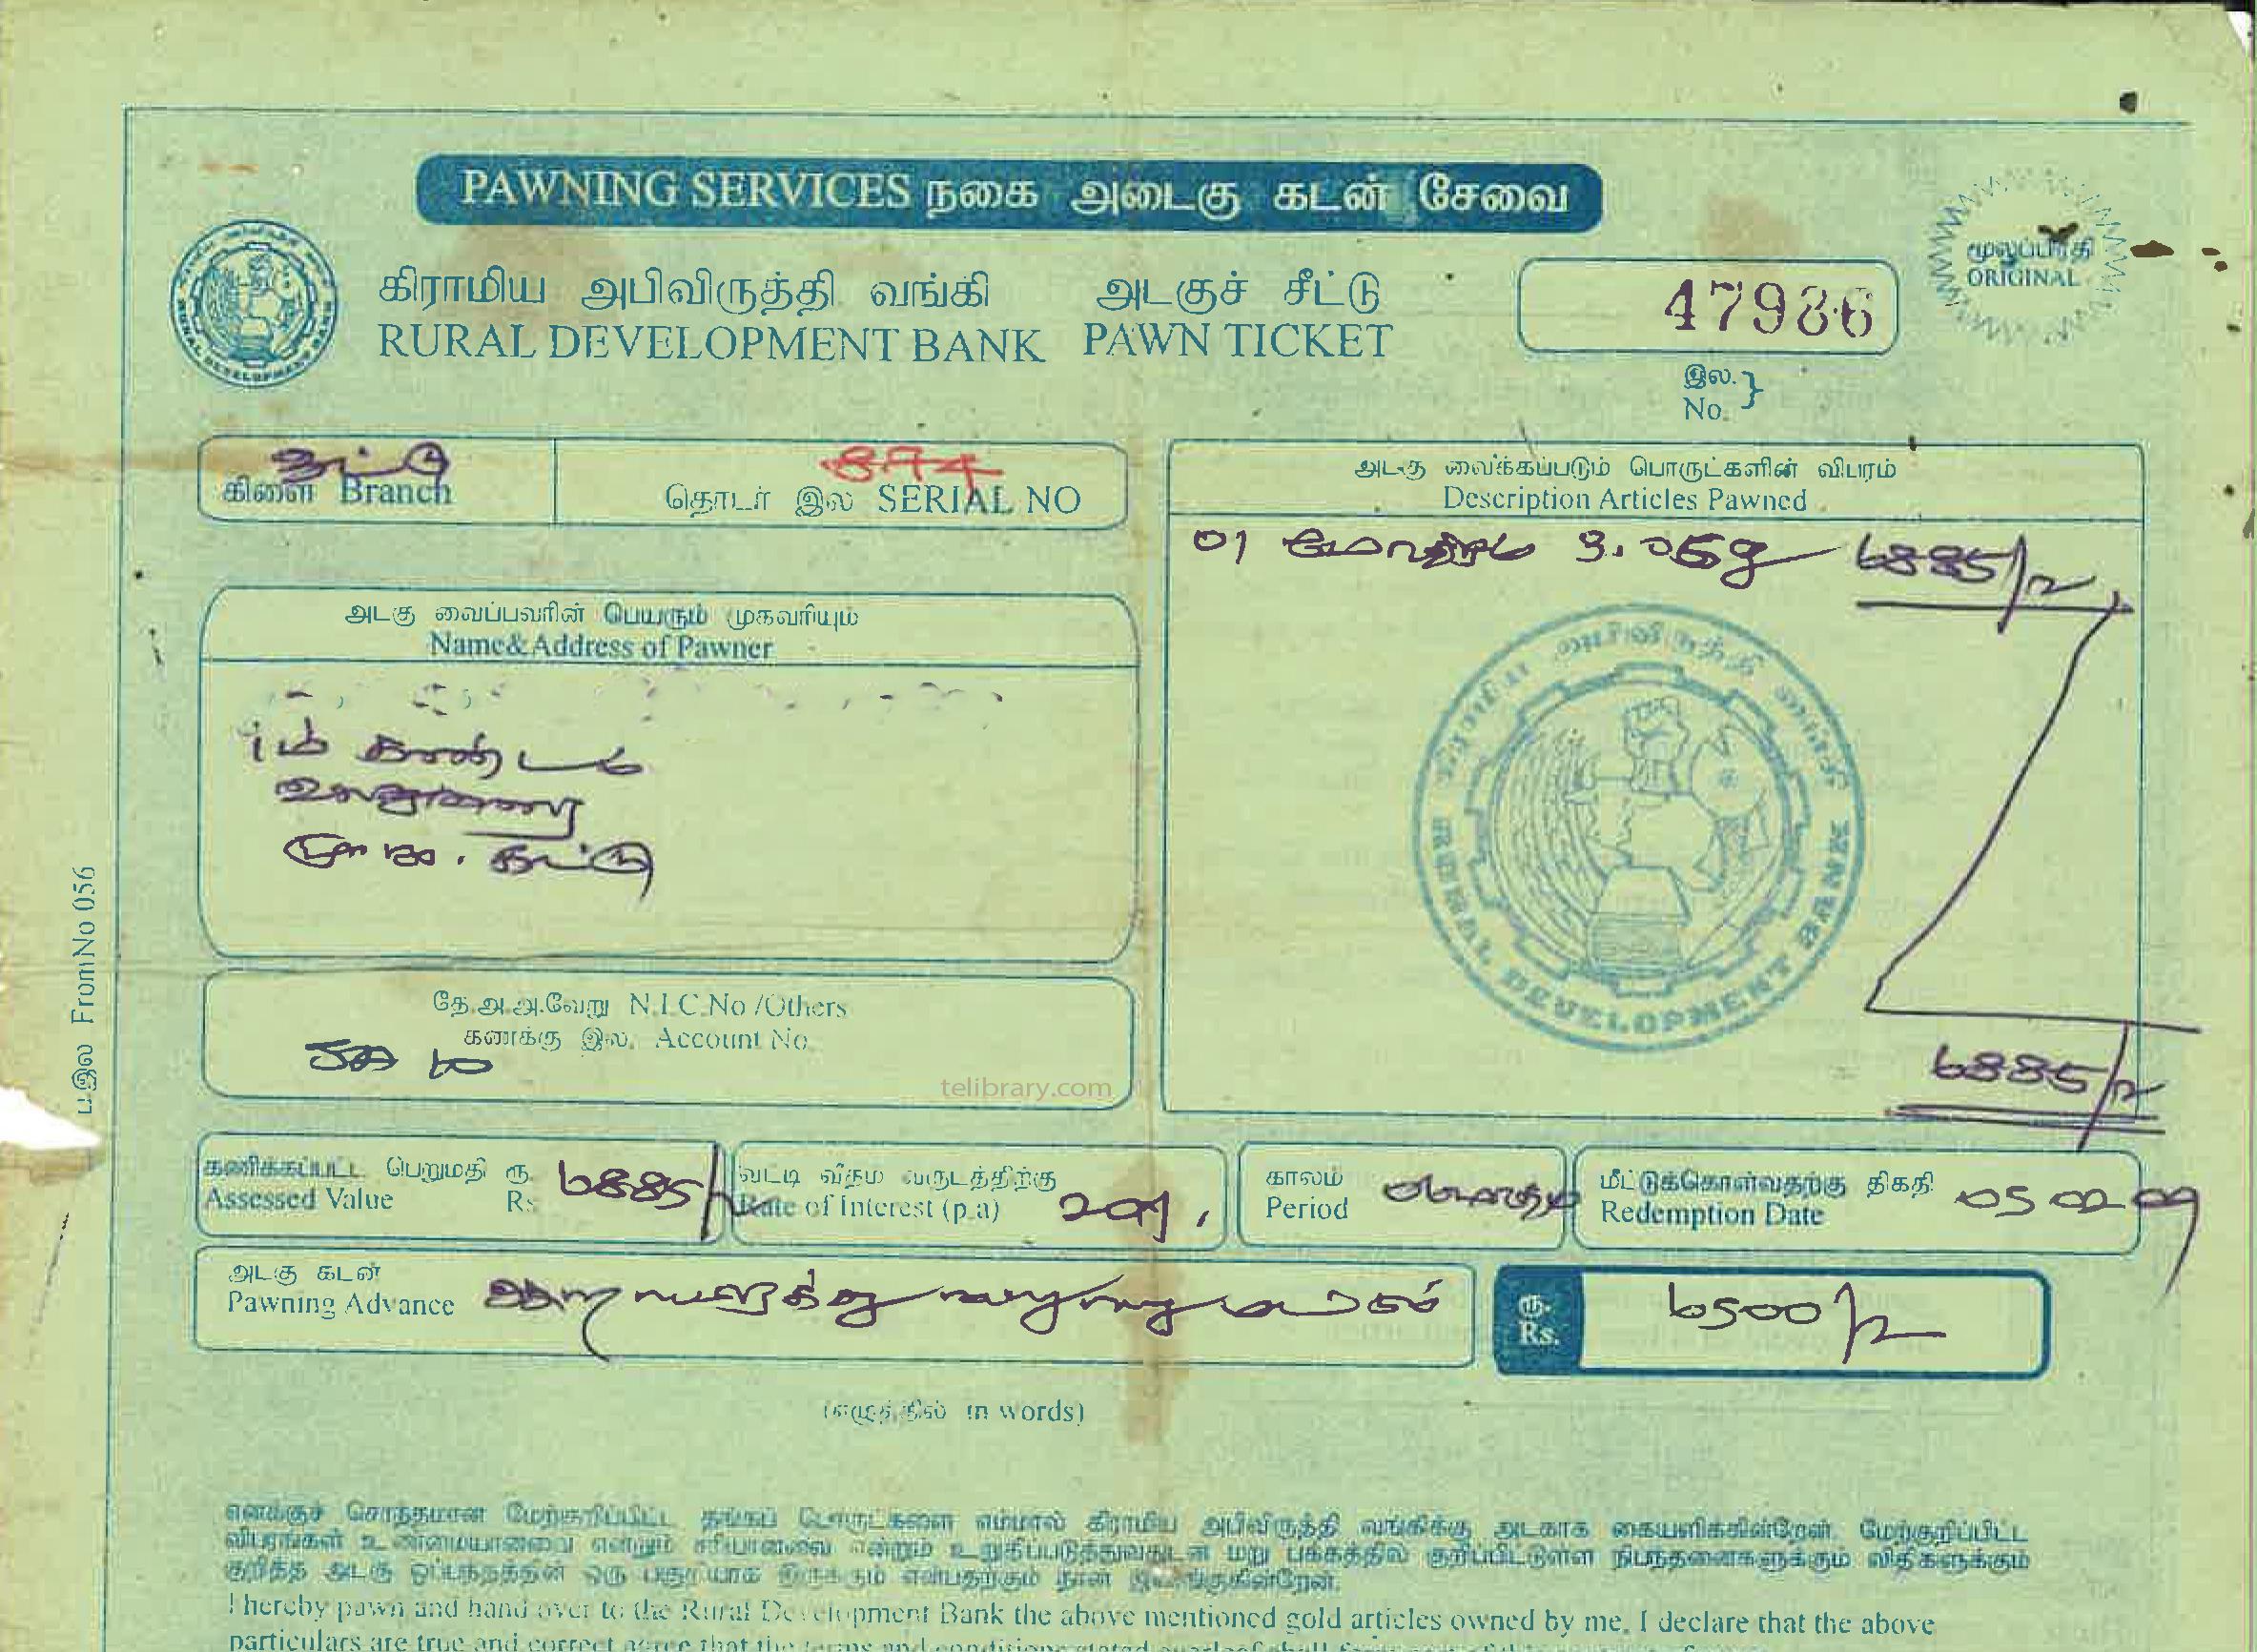 PAWNING SERVICES நகை அடைகு கடன் சேவை
மூலப்பிரதி
ORIGINAL
கிராமிய அபிவிருத்தி வங்கி அடகுச் சீட்டு
RURAL DEVELOPMENT BANK PAWN TICKET
47936
இல.
No.
கிளை Branch
874
தொடர் இல SERIAL NO
அடகு வைக்கப்படும் பொருட்களின் விபரம்
Description Articles Pawned
01 மோதிரம் 3.05g 6885/=
அடகு வைப்பவரின் பெயரும் முகவரியும்
Name&Address of Pawner
கிராமிய அபிவிருத்தி வங்கி
RURAL DEVELOPMENT BANK
தே.அ.அ.வேறு N.I.C.No /Others
கணக்கு இல. Account No.
telibrary.com
6885/=
ப.இல FromNo 056
கணிக்கப்பட்ட பெறுமதி ரூ.
Assessed Value Rs 6885/=
வட்டி வீதம் வருடத்திற்கு
Rate of Interest (p.a) 20%
காலம்
Period
மீட்டுக்கொள்வதற்கு திகதி
Redemption Date 05 02 09
அடகு கடன்
Pawning Advance
ரூ.
Rs.
6500/=
(எழுத்தில் in words)
எனக்குச் சொந்தமான மேற்குறிப்பிட்ட தங்கப் பொருட்களை எம்மால் கிராமிய அபிவிருத்தி வங்கிக்கு அடகாக கையளிக்கின்றேன். மேற்குறிப்பிட்ட
விபரங்கள் உண்மையானவை என்றும் சரியானவை என்றும் உறுதிப்படுத்துவதுடன் மறு பக்கத்தில் குறிப்பிட்டுள்ள நிபந்தனைகளுக்கும் விதிகளுக்கும்
குறித்த அடகு ஒப்பந்தத்தின் ஒரு பகுதியாக இருக்கும் என்பதற்கும் நான் இணங்குகின்றேன்.
I hereby pawn and hand over to the Rural Development Bank the above mentioned gold articles owned by me. I declare that the above
particulars are true and correct agree that the terms and conditions stated overleaf shall